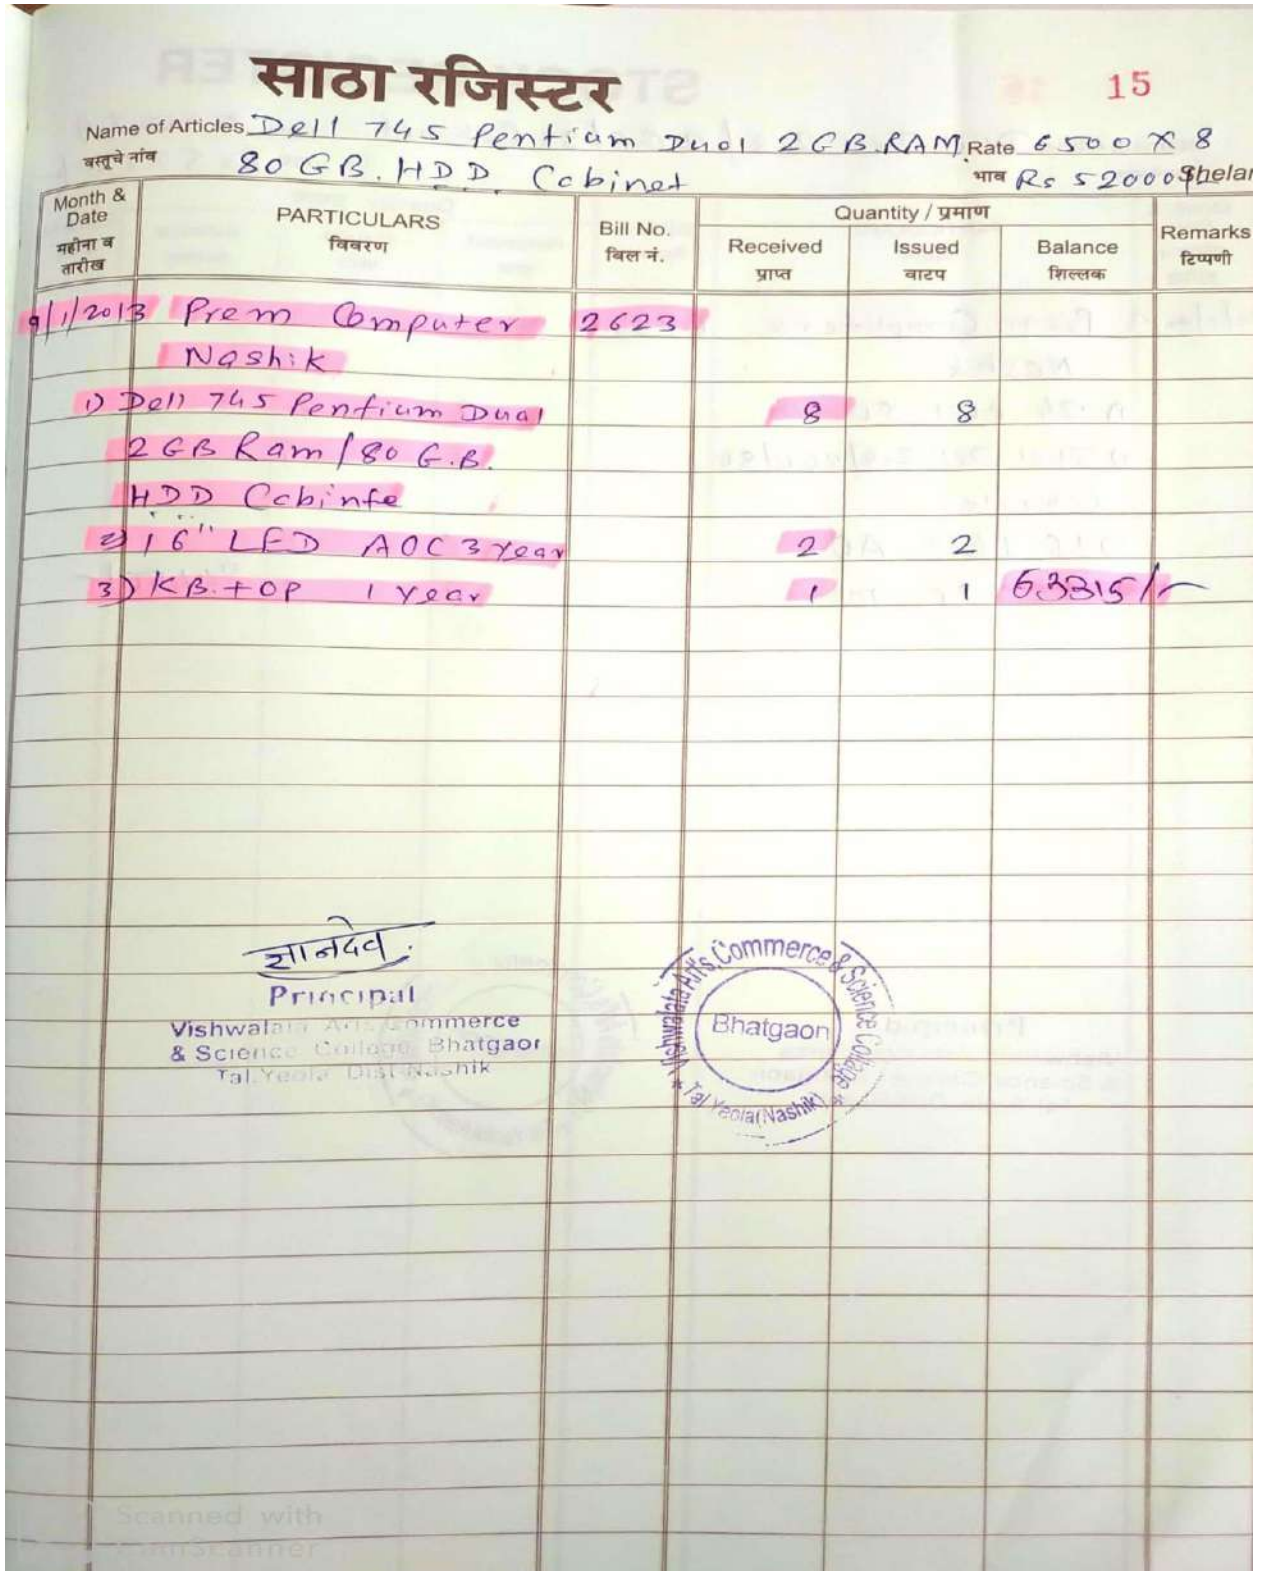 साठा रजिस्टर
15
Name of Articles Dell 745 Pentium Dual 2 GB.RAM Rate 6500 X 8
वस्तूचे नांव 80 GB. HDD Cabinet भाव Rs 52000 Shelar
Month & Date PARTICULARS Bill No. Quantity / प्रमाण Remarks
महीना व तारीख विवरण बिल नं. Received Issued Balance टिप्पणी
प्राप्त वाटप शिल्लक
9/1/2013 Prem Computer 2623
Nashik
1) Dell 745 Pentium Dual 8 8
2 GB Ram / 80 G.B.
HDD Cabinte
2) 16" LED AOC 3 Year 2 2
3) KB.+OP 1 Year 1 1 63315/-
ज्ञानदेव.
Principal
Vishwalata Arts Commerce
& Science College Bhatgaon
Tal.Yeola Dist Nashik
Vishwalata Art's, Commerce & Science College
Bhatgaon
Tal.Yeola(Nashik)
Scanned with
CamScanner